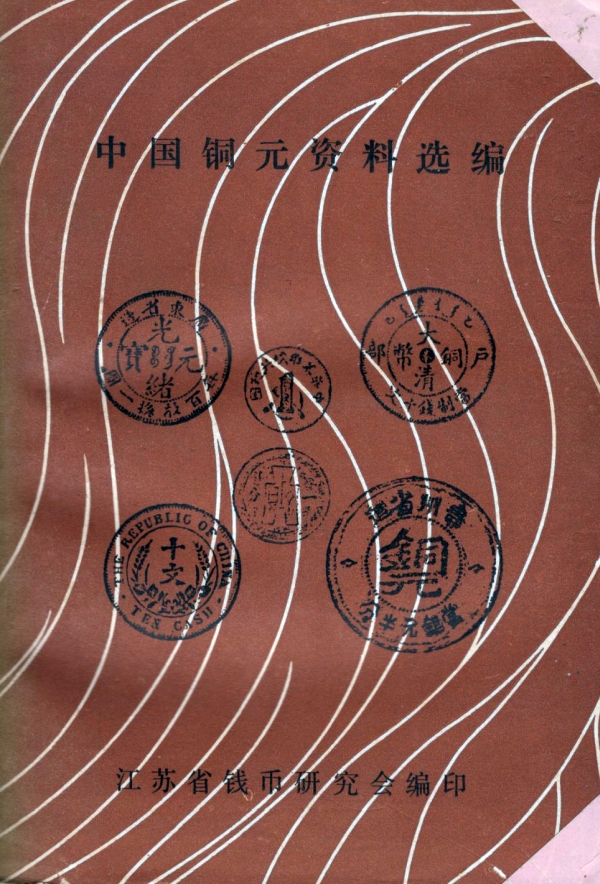 中国铜元资料选编
廣東省造
光緒元寶
每百枚換一圓
户部
大清銅幣
當制錢十文
THE REPUBLIC OF CHINA
十文
TEN CASH
銅元
江苏省钱币研究会编印